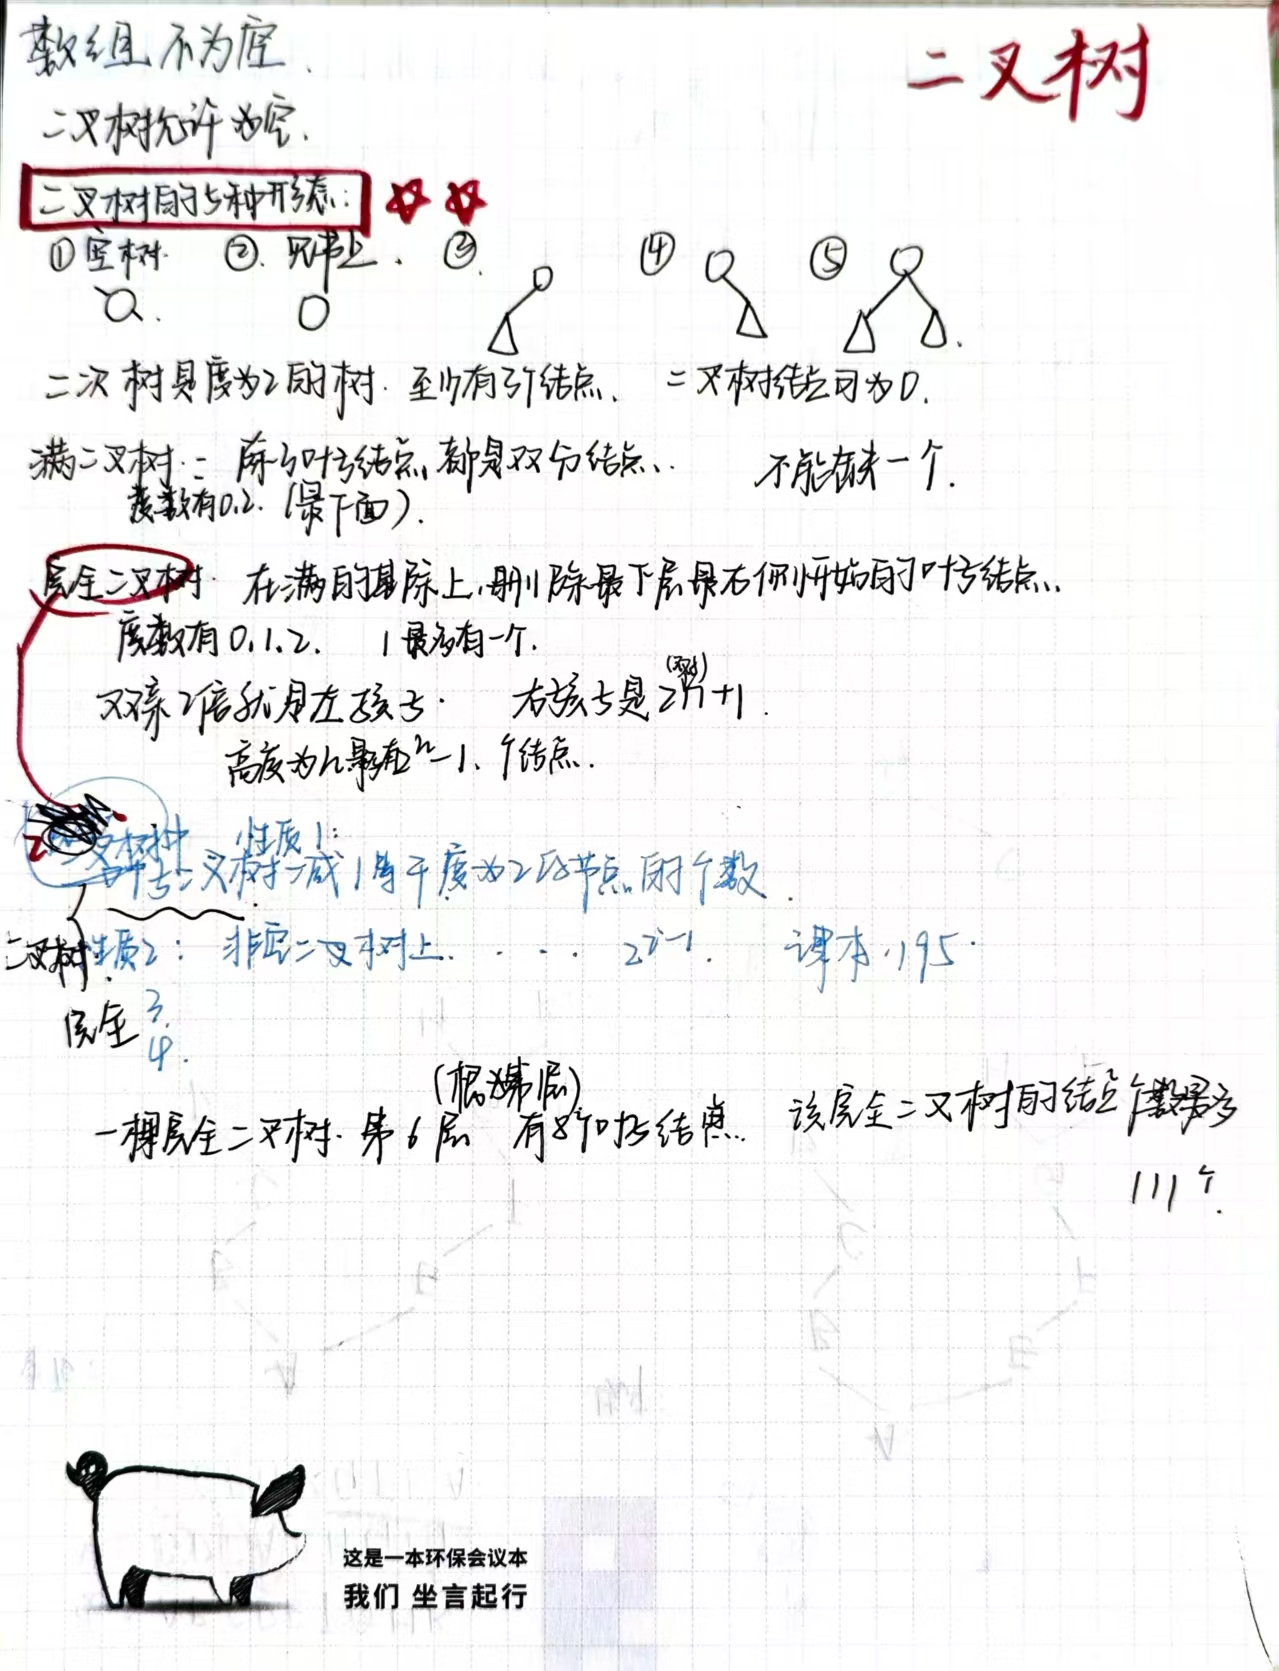 数组不为空.
二叉树
二叉树允许为空.
二叉树的5种形态:
① 空树 ② 只有 . ③ ④ ⑤
二次树是度为2的树. 至少有3个结点. 二叉树结点可为0.
满二叉树: 除了叶子结点, 都是双分结点. 不能缺一个.
度数有0.2. (最下面).
完全二叉树. 在满的基础上,删除最下层最右侧开始的叶子结点.
度数有0.1.2. 1最多有一个.
双亲2倍就是左孩子. 右孩子是2n+1.
高度为h最有2ʰ-1.个结点.
二叉树种 性质1:
叶子二叉树减1等于度为2的节点的个数.
二叉树性质2: 非空二叉树上. . . . 2ⁱ⁻¹. 课本.195.
完全 3.
4.
(根为第1层)
一棵完全二叉树. 第6层 有8个叶子结点. 该完全二叉树的结点个数最多
111个.
这是一本环保会议本
我们 坐言起行